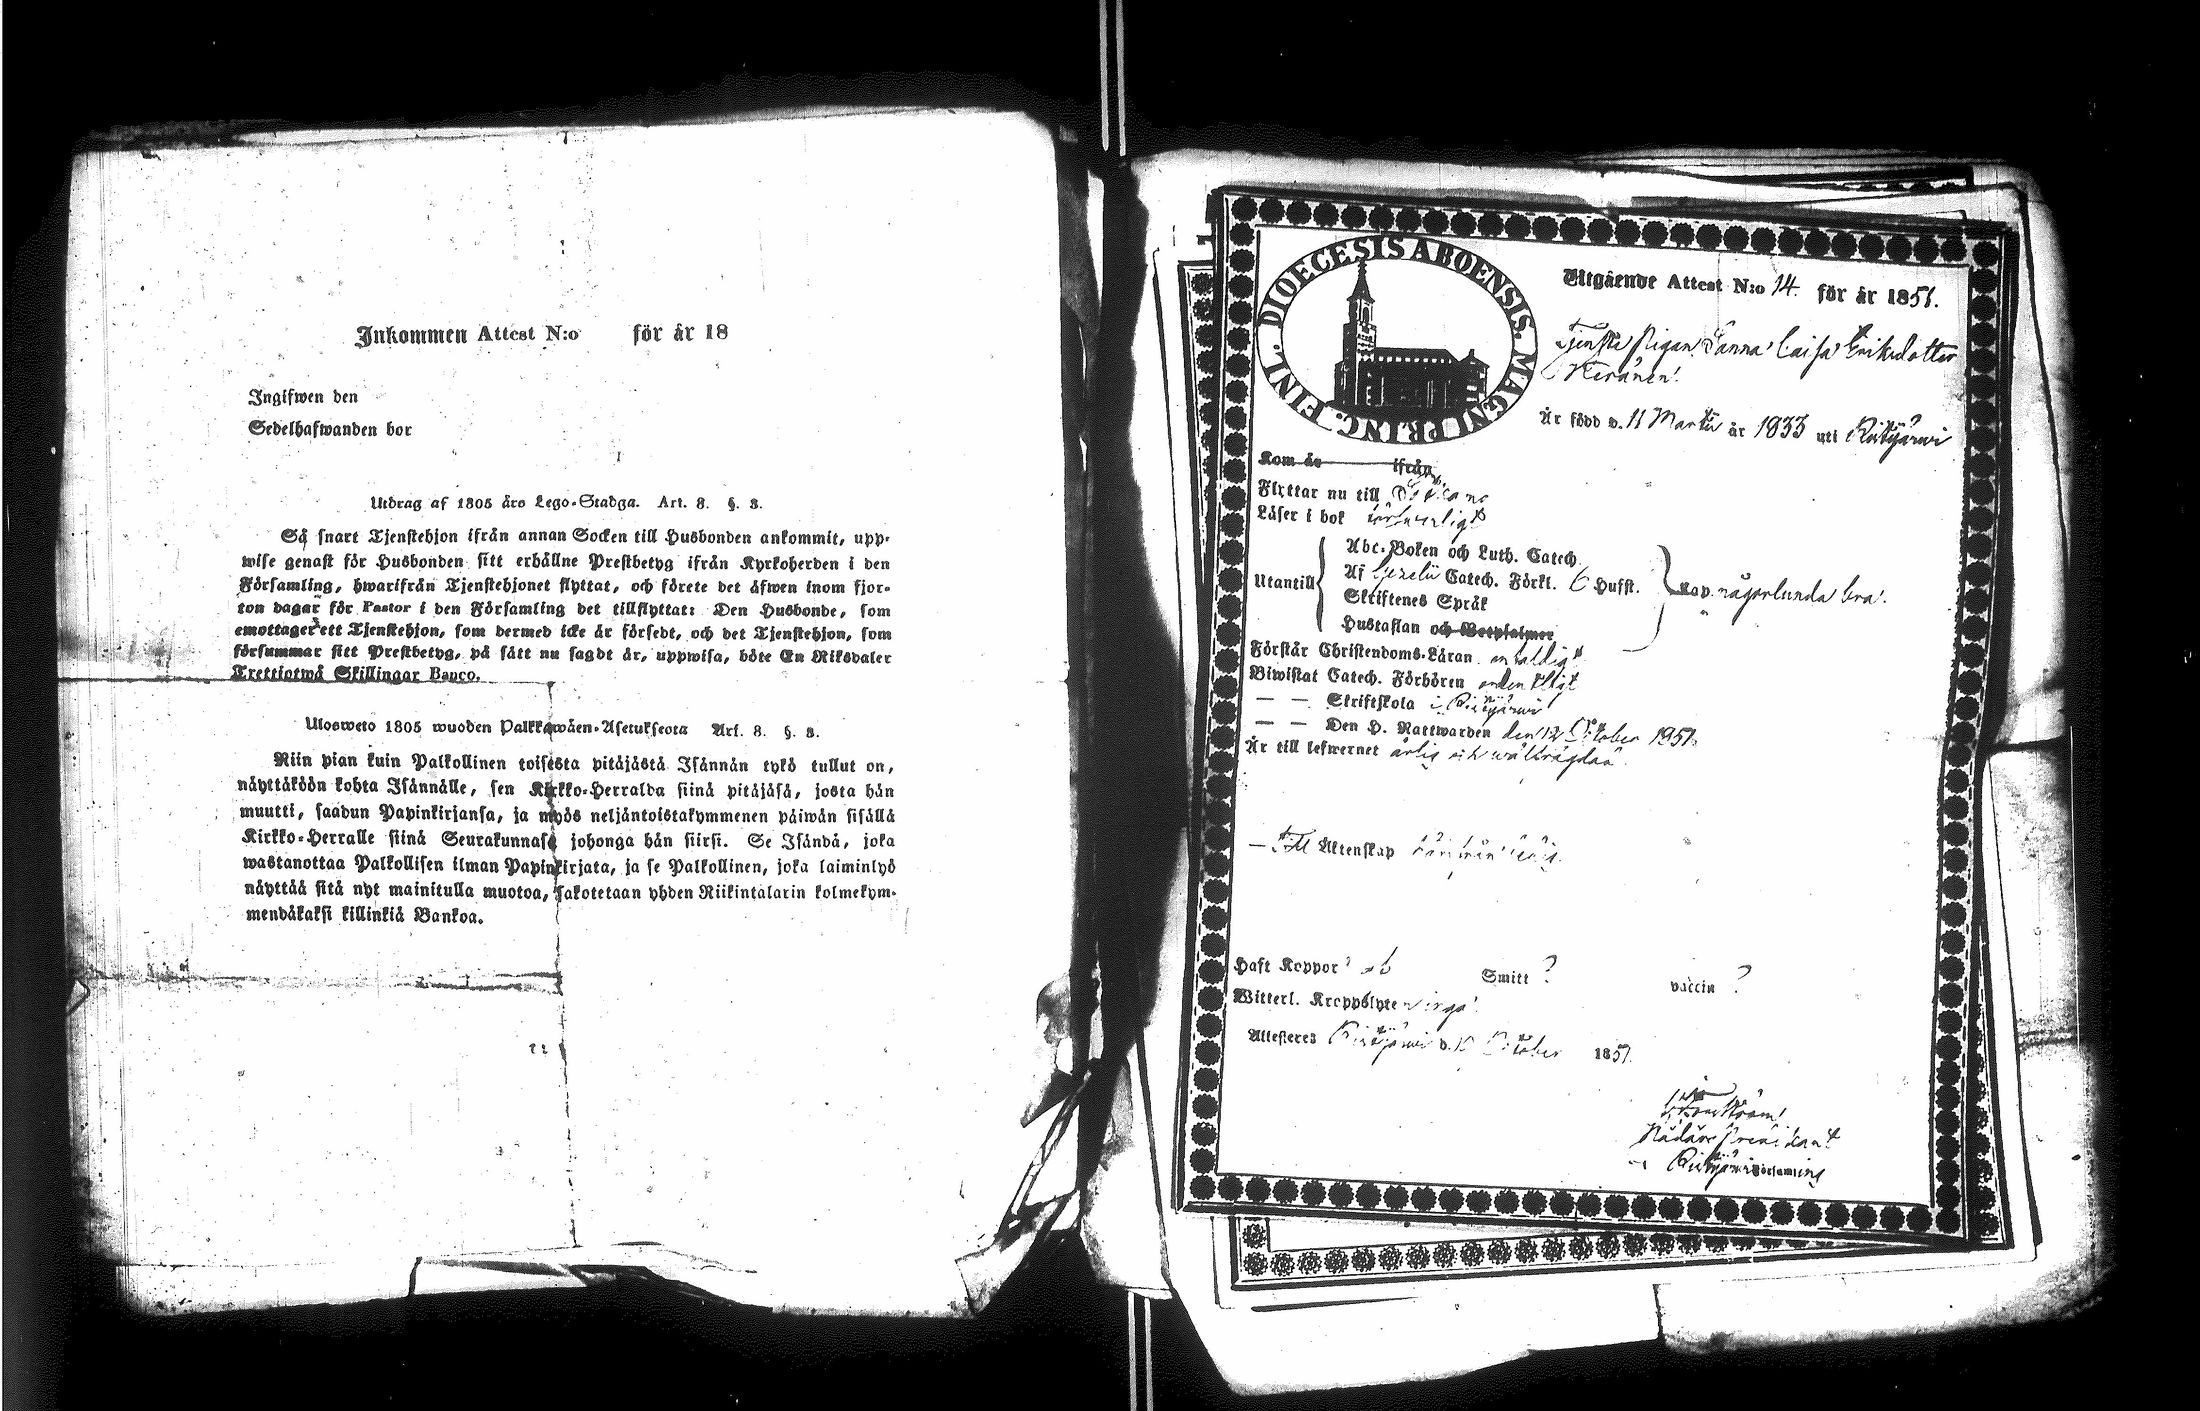 Inkommen Attest N:o för år 18
Ingifwen den
Sedelhafwanden bor
Utdrag af 1805 års Lego-Stadga. Art. 8. §. 3.
Så snart Tjenstehjon ifrån annan Socken till Husbonden ankommit, upp-
wise genast för Husbonden sitt erhållne Prestbetyg ifrån Kyrkoherden i den
Församling, hwarifrån Tjenstehjonet flyttat, och förete det äfwen inom fjor-
ton dagar för Pastor i den Församling det tillflyttat: Den Husbonde, som
emottager ett Tjenstehjon, som dermed icke är försedt, och det Tjenstehjon, som
försummar sitt Prestbetyg, på sätt nu sagdt är, uppwisa, böte En Riksdaler
Trettiotwå Skillingar Banco.
Ulosweto 1805 wuoden Palkkawäen-Asetuksesta Art. 8. §. 3.
Niin pian kuin Palkollinen toisesta pitäjästä Isännän tykö tullut on,
näyttäköön kohta Isännälle, sen Kirkko-Herralda siinä pitäjäsä, josta hän
muutti, saadun Papinkirjansa, ja myös neljäntoistakymmenen päiwän sisällä
Kirkko-Herralle siinä Seurakunnasa johonga hän siirsi. Se Isändä, joka
wastanottaa Palkollisen ilman Papinkirjata, ja se Palkollinen, joka laiminlyö
näyttää sitä nyt mainitulla muotoa, sakotetaan yhden Riikintalarin kolmekym-
mendäkaksi killinkiä Bankoa.
DIOECESIS ABOENSIS. MAGNI PRINC. FINL.
Utgående Attest N:o 14. för år 1851.
Tjenste Pigan Sanna Caisa Eriksdotter
Keränen.
Är född d. 11 Martii år 1833 uti Ristijärwi
Kom år ifrån
Flyttar nu till
Läser i bok försvarligt
Abc-Boken och Luth. Catech.
Utantill Af Svebelii Catech. Förkl. 6 Hufst. Kap. någorlunda bra.
Skriftenes Språk
Hustaflan och Botpsalmer
Förstår Christendoms-Läran enfaldigt
Biwistat Catech. Förhören ordentligt
— — Skriftskola i Ristijärwi
— — Den H. Nattwarden den 12 October 1851.
Är till lefwernet ärlig och wälfrägdad
— Till Äktenskap
Haft Koppor? Smitt ? vaccin ?
Witterl. Kroppslyte inga
Attesteres Ristijärwi d. October 1851.
Ristijärwi Församling